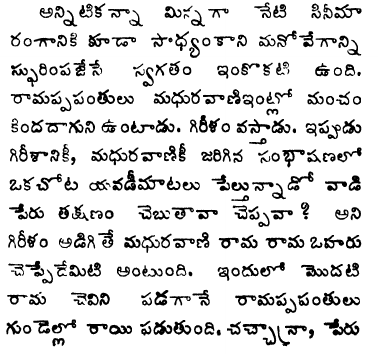 అన్నిటికన్నా మిన్నగా నేటి సినీమా
రంగానికి కూడా సాధ్యంకాని మనోవేగాన్ని
స్ఫురింపజేసే స్వగతం ఇంకొకటి ఉంది.
రామప్పపంతులు మధురవాణిఇంట్లో మంచం
కిందదాగుని ఉంటాడు. గిరీశం వస్తాడు. ఇప్పుడు
గిరీశానికీ, మధురవాణికీ జరిగిన సంభాషణలో
ఒకచోట యెవడీమాటలు పేల్తున్నాడో వాడి
పేరు తక్షణం చెబుతావా చెప్పవా? అని
గిరీశం అడిగితే మధురవాణి రామ రామ ఒహరు
చెప్పేడేమిటి అంటుంది. ఇందులో మొదటి
రామ చెవిని పడగానే రామప్పపంతులు
గుండెల్లో రాయి పడుతుంది. చచ్చానా, పేరు